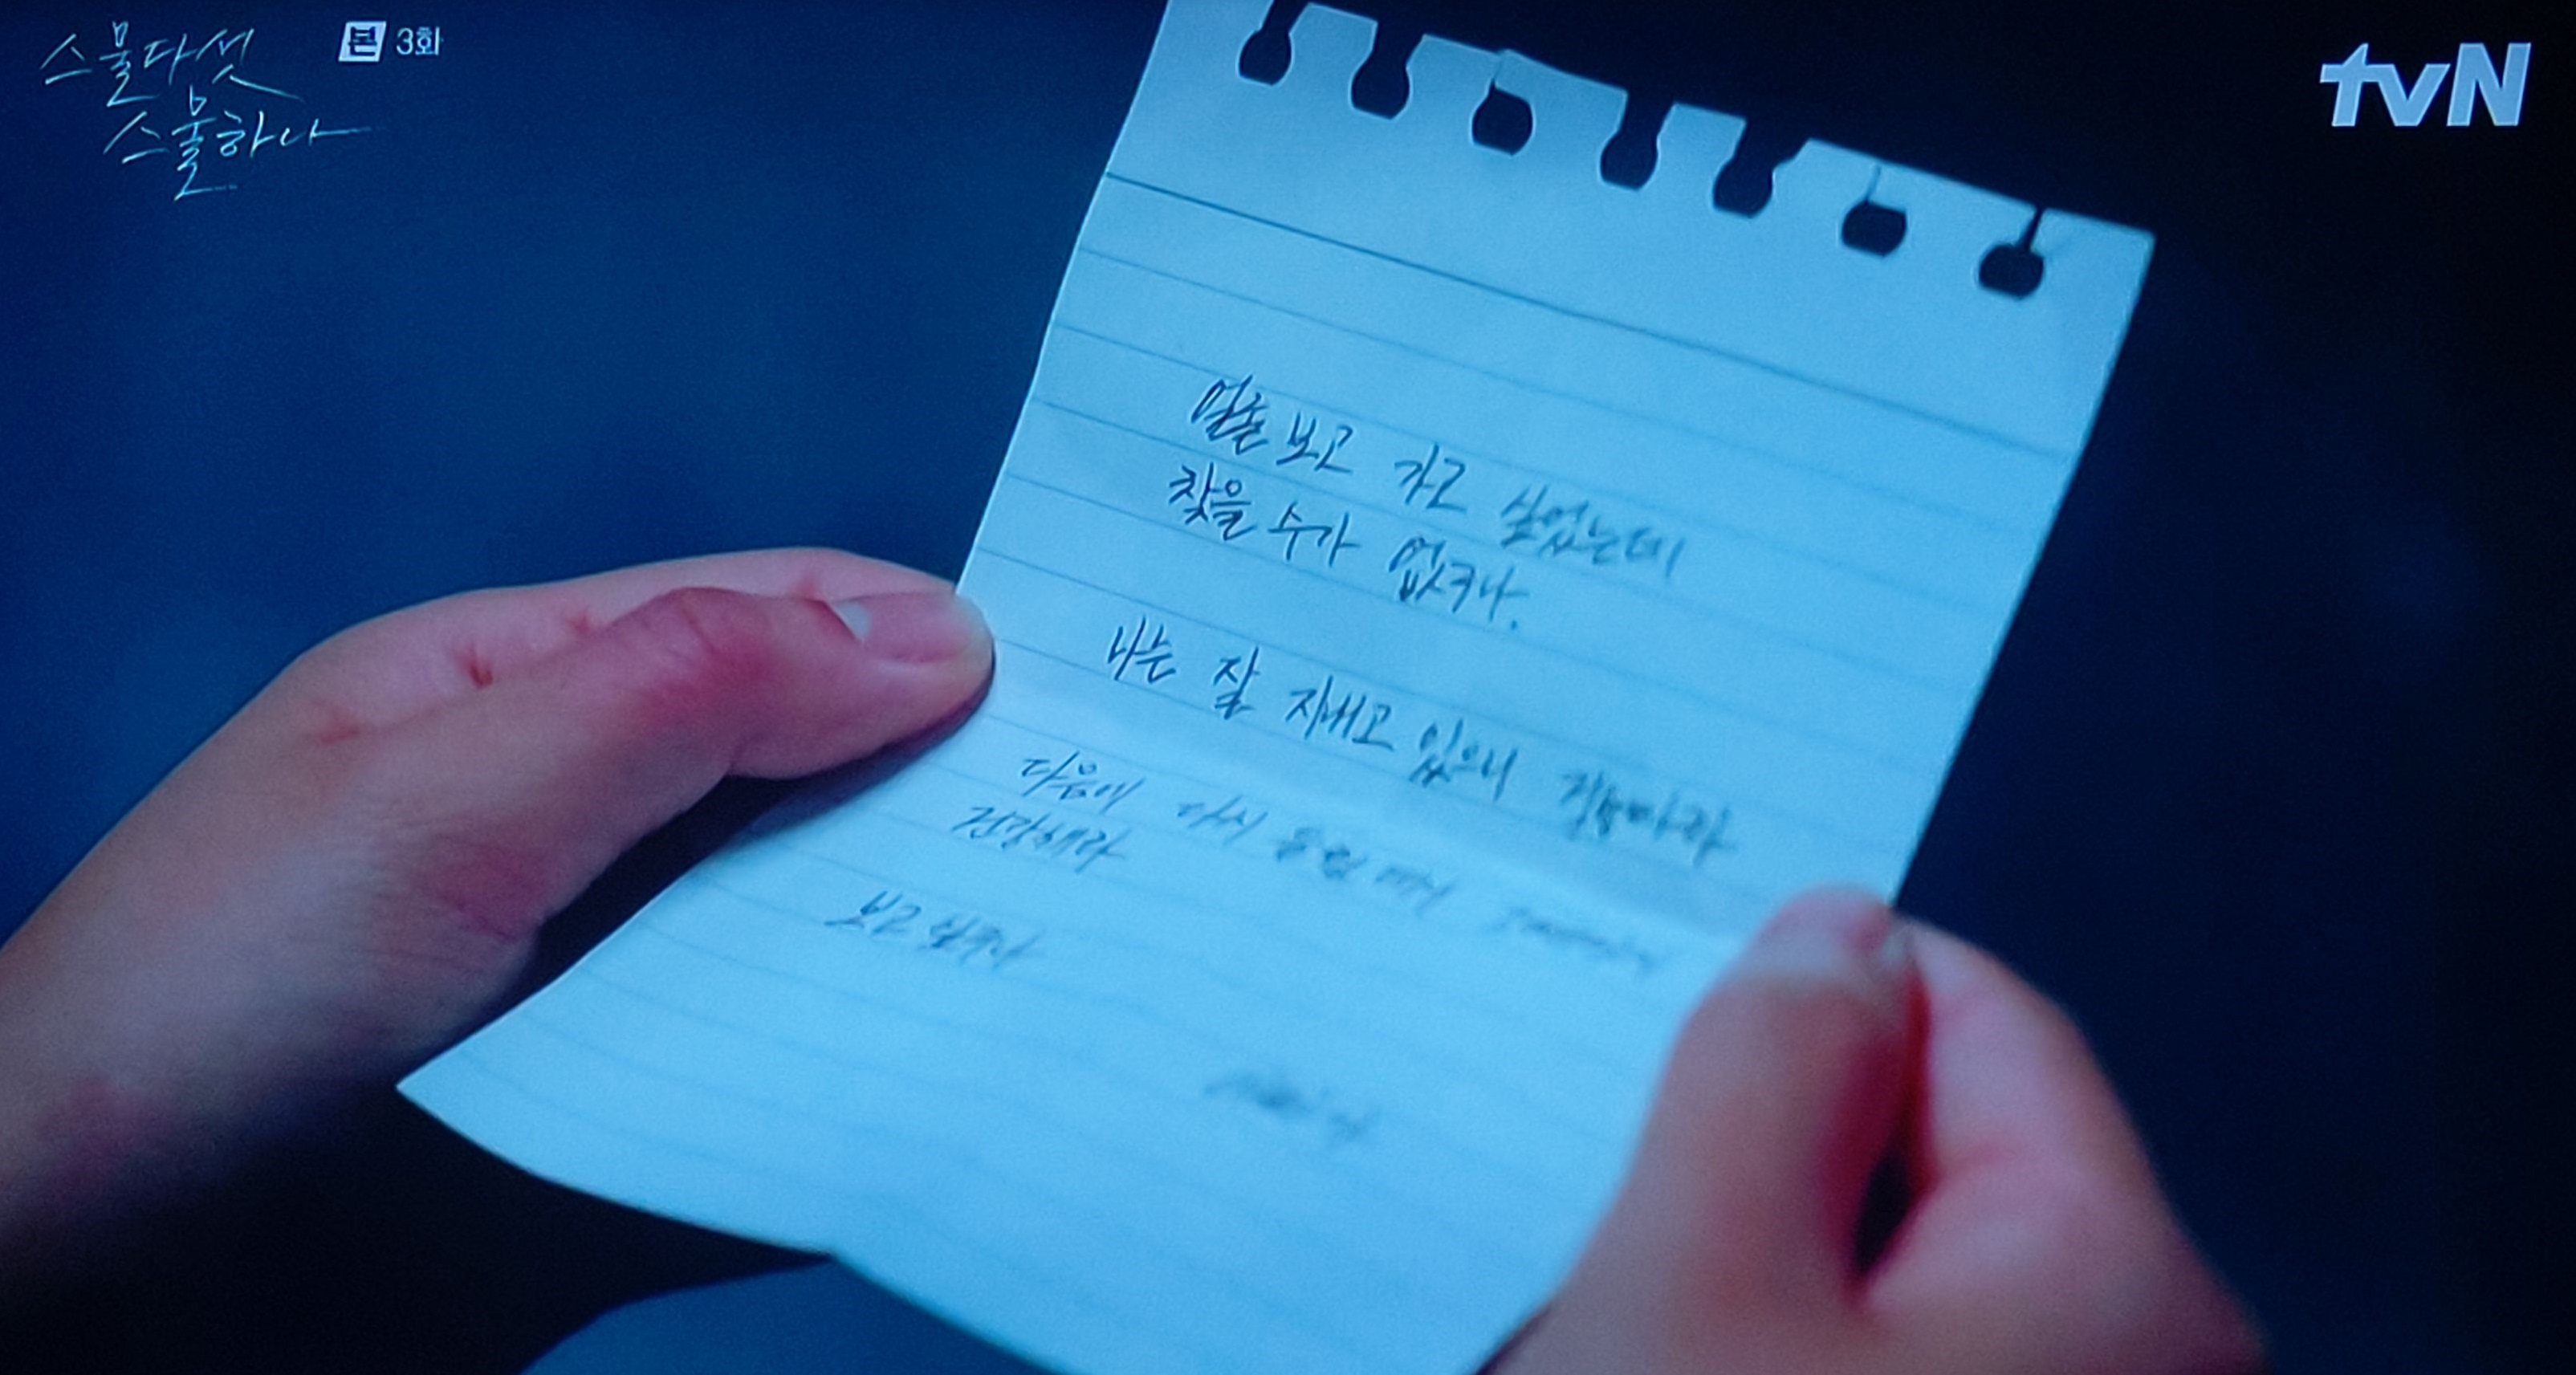 스물다섯
스물하나
본 3회
tvN
얼굴 보고 가고 싶었는데
찾을 수가 없구나.
나는 잘 지내고 있으니 걱정마라
다음에 다시 올 때까지
건강해라
보고 싶구나